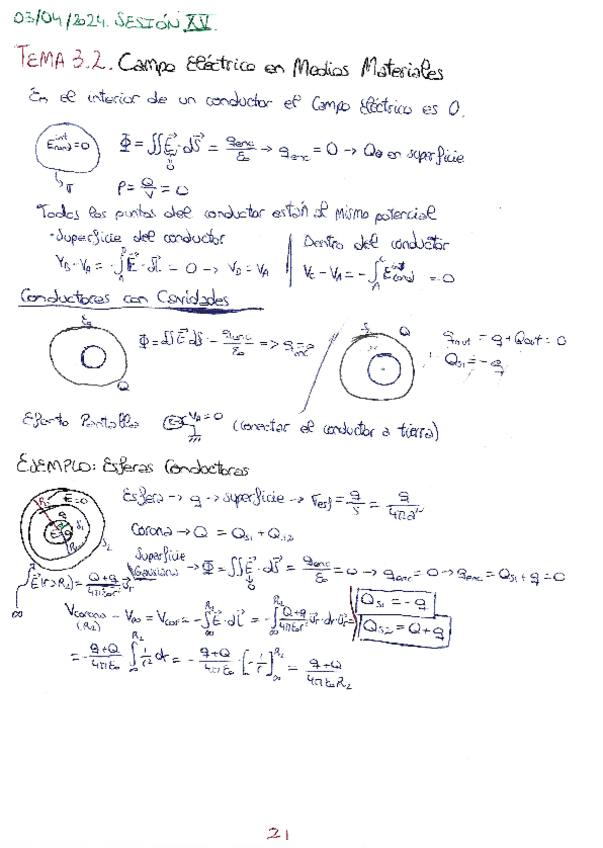 03/04/2024. SESIÓN XV.
TEMA 3.2. Campo Eléctrico en Medios Materiales
En el interior de un conductor el Campo Eléctrico es 0.
E int cond = 0 Φ = ∬E·dS = q enc/ε₀ → q enc = 0 → Q en superficie
σ ρ = Q/V = 0
Todos los puntos del conductor están al mismo potencial
·Superficie del conductor
Dentro del conductor
V_B - V_A = -∫_A^B E·dl = 0 → V_B = V_A
V_C - V_A = -∫_A E int cond = 0
Conductores con Cavidades
Q
Φ = ∬E·dS = q enc/ε₀ => q enc =
Q
q + Q = 0
Q_S1 = -q
Efecto Pantalla V_A = 0 (conectar el conductor a tierra)
EJEMPLO: Esferas Conductoras
E=0 q S₁ S₂
Esfera → q → superficie → σ esf = q/S = q/4πa²
Corona → Q = Q_S1 + Q_S2
Superficie
Gaussiana → Φ = ∬E·dS = q enc/ε₀ = 0 → q enc = 0 → q enc = Q_S1 + q = 0
E(r>R₂) = Q+q/4πε₀r² u_r
V corona (R₂) - V∞ = V cor = -∫_∞^R₂ E·dl = -∫_∞^R₂ Q+q/4πε₀r² u_r·dr·u_r =
Q_S1 = -q
Q_S2 = Q+q
= -q+Q/4πε₀ ∫_∞^R₂ 1/r² dr = -q+Q/4πε₀ · [-1/r]_∞^R₂ = q+Q/4πε₀R₂
21